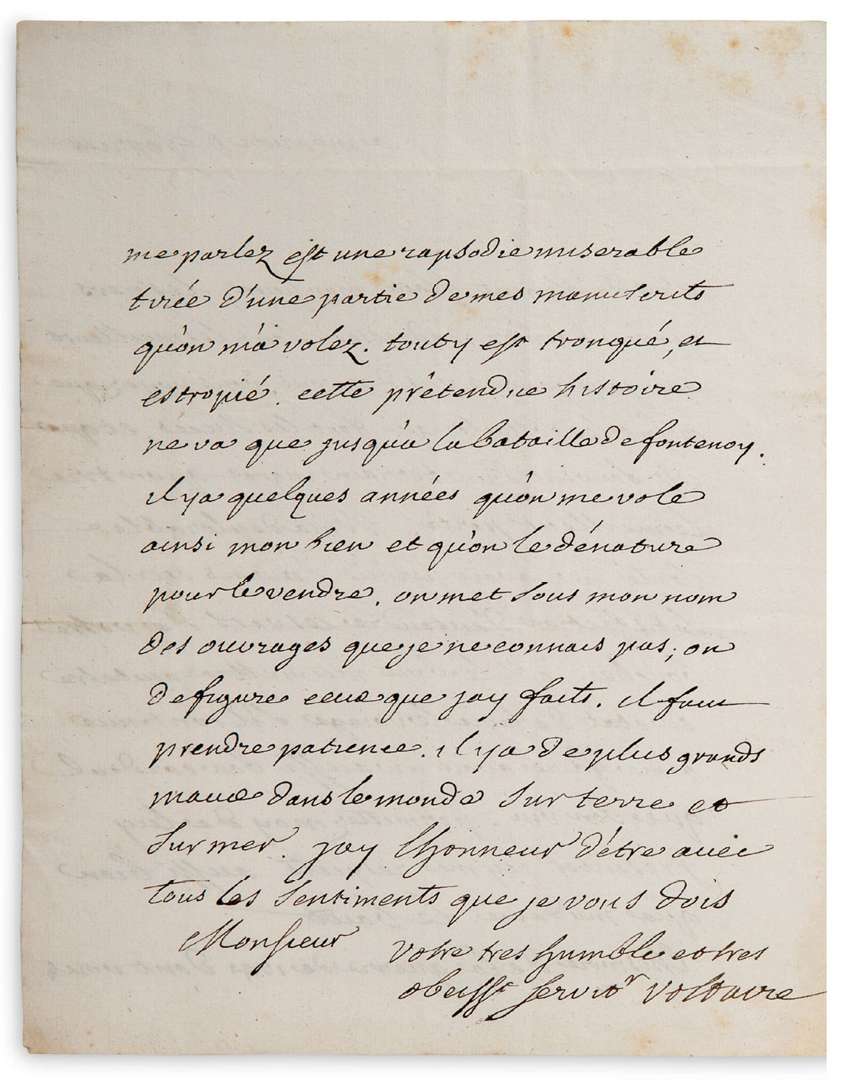 me parlez est une rapsodie miserable
tirée d'une partie de mes manuscrits
qu'on m'a volez. tout y est tronqué, et
estropié. cette prétendue histoire
ne va que jusqu'a la bataille de fontenoy.
il y a quelques années qu'on me vole
ainsi mon bien et qu'on le dénature
pour le vendre. on met sous mon nom
des ouvrages que je ne connais pas; on
defigure ceux que jay faits. il faut
prendre patience. il y a de plus grands
maux dans le monde sur terre et
sur mer. jay lhonneur d'être avec
tous les sentiments que je vous dois
Monsieur
votre tres humble et tres
obeisst servitr voltaire